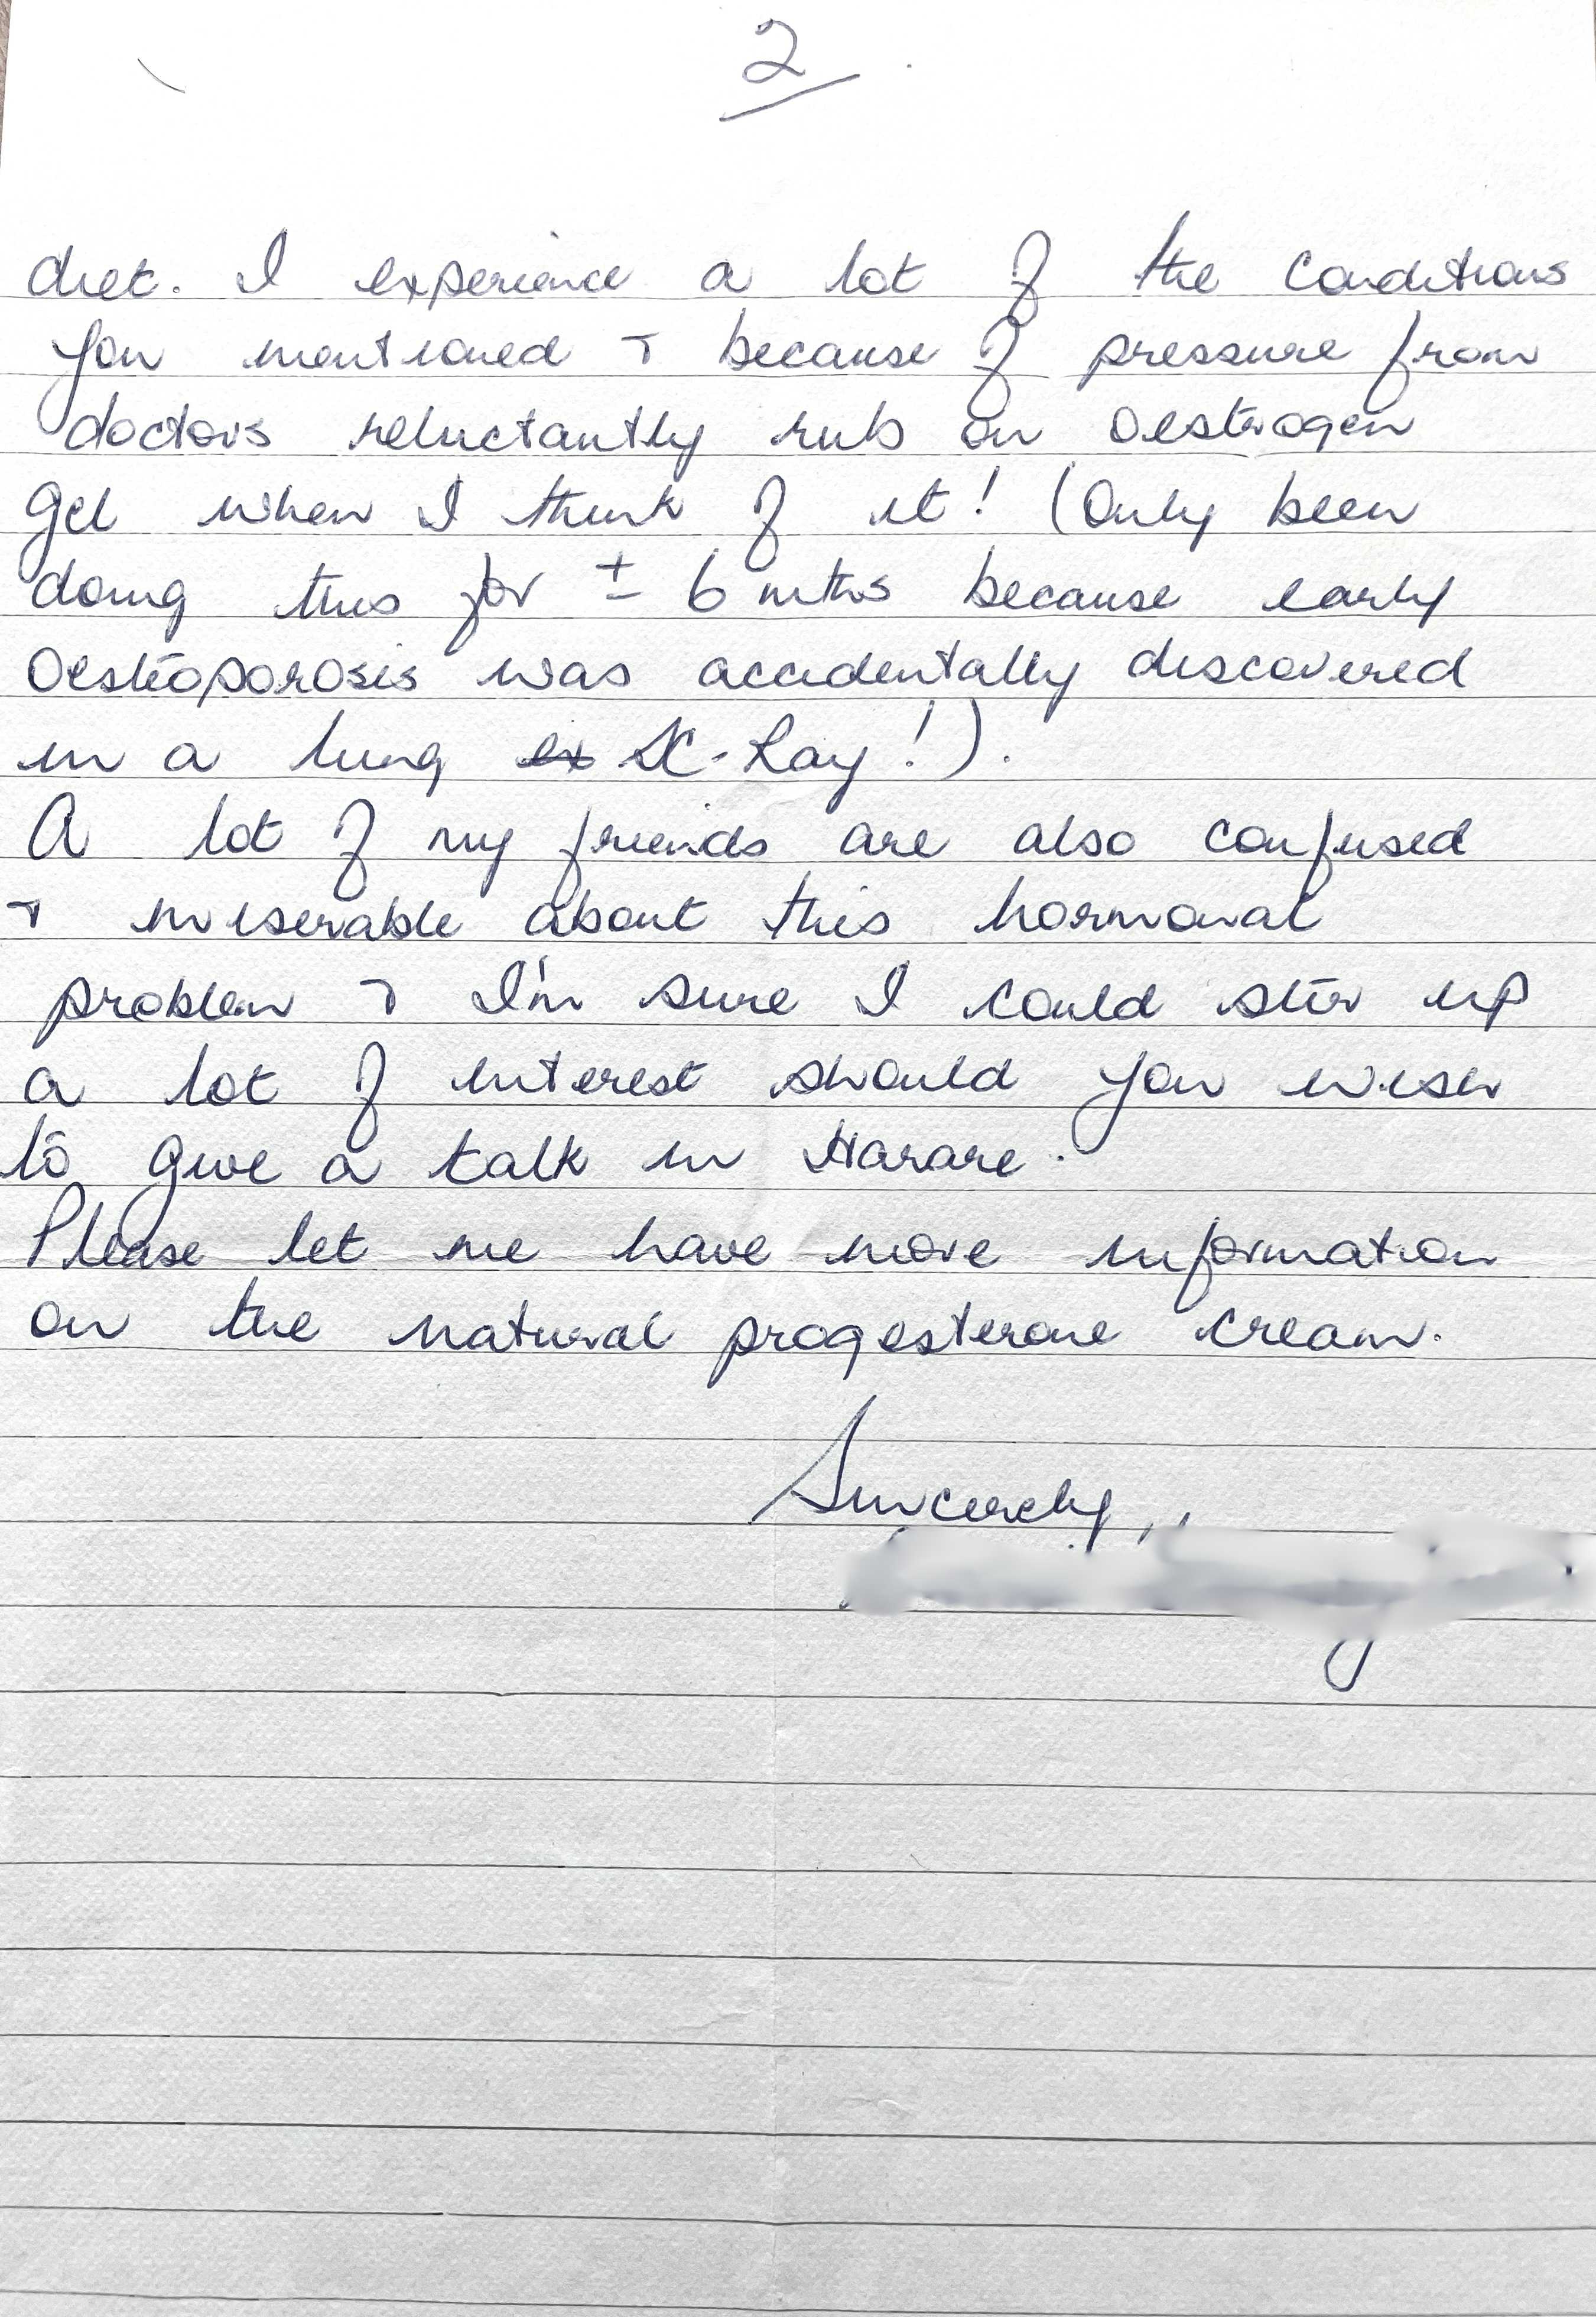 2
diet. I experience a lot of the conditions
you mentioned & because of pressure from
doctors reluctantly rub on Oestrogen
gel when I think of it! (Only been
doing this for ± 6 mths because early
Oesteoporosis was accidentally discovered
in a lung ex X-Ray!).
A lot of my friends are also confused
& miserable about this hormonal
problem & I'm sure I could stir up
a lot of interest should you wish
to give a talk in Harare.
Please let me have more information
on the natural progesterone cream.
Sincerely,,